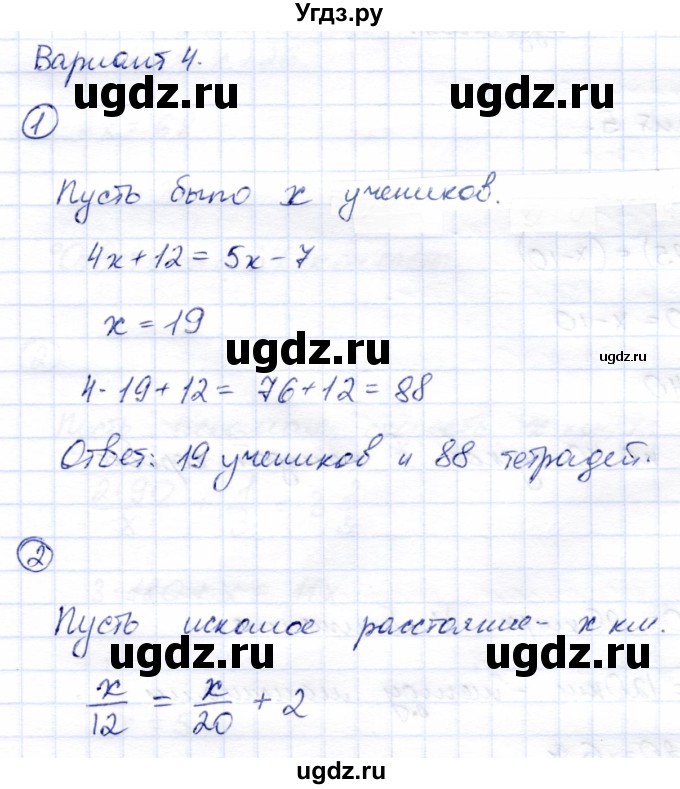 Угдз.ру
Вариант 4.
ugdz.ru ugdz.ru
1
Пусть было x учеников.
4x + 12 = 5x - 7
x = 19
ugdz.ru
ugdz.ru
4·19 + 12 = 76 + 12 = 88
Ответ: 19 учеников и 88 тетрадей.
2
Пусть искомое расстояние - x км.
ugdz.ru ugdz.ru
x/12 = x/20 + 2
ugdz.ru